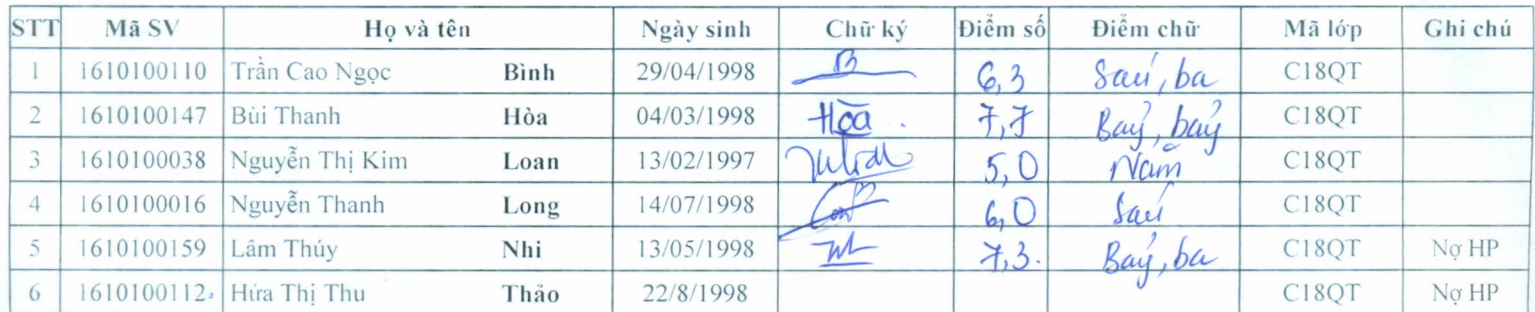 STT Mã SV Họ và tên Ngày sinh Chữ ký Điểm số Điểm chữ Mã lớp Ghi chú
1 1610100110 Trần Cao Ngọc Bình 29/04/1998 6,3 Sáu, ba C18QT
2 1610100147 Bùi Thanh Hòa 04/03/1998 Hòa . 7,7 Bảy, bảy C18QT
3 1610100038 Nguyễn Thị Kim Loan 13/02/1997 5,0 Năm C18QT
4 1610100016 Nguyễn Thanh Long 14/07/1998 6,0 Sáu C18QT
5 1610100159 Lâm Thúy Nhi 13/05/1998 7,3. Bảy, ba C18QT Nợ HP
6 1610100112 Hứa Thị Thu Thảo 22/8/1998 C18QT Nợ HP